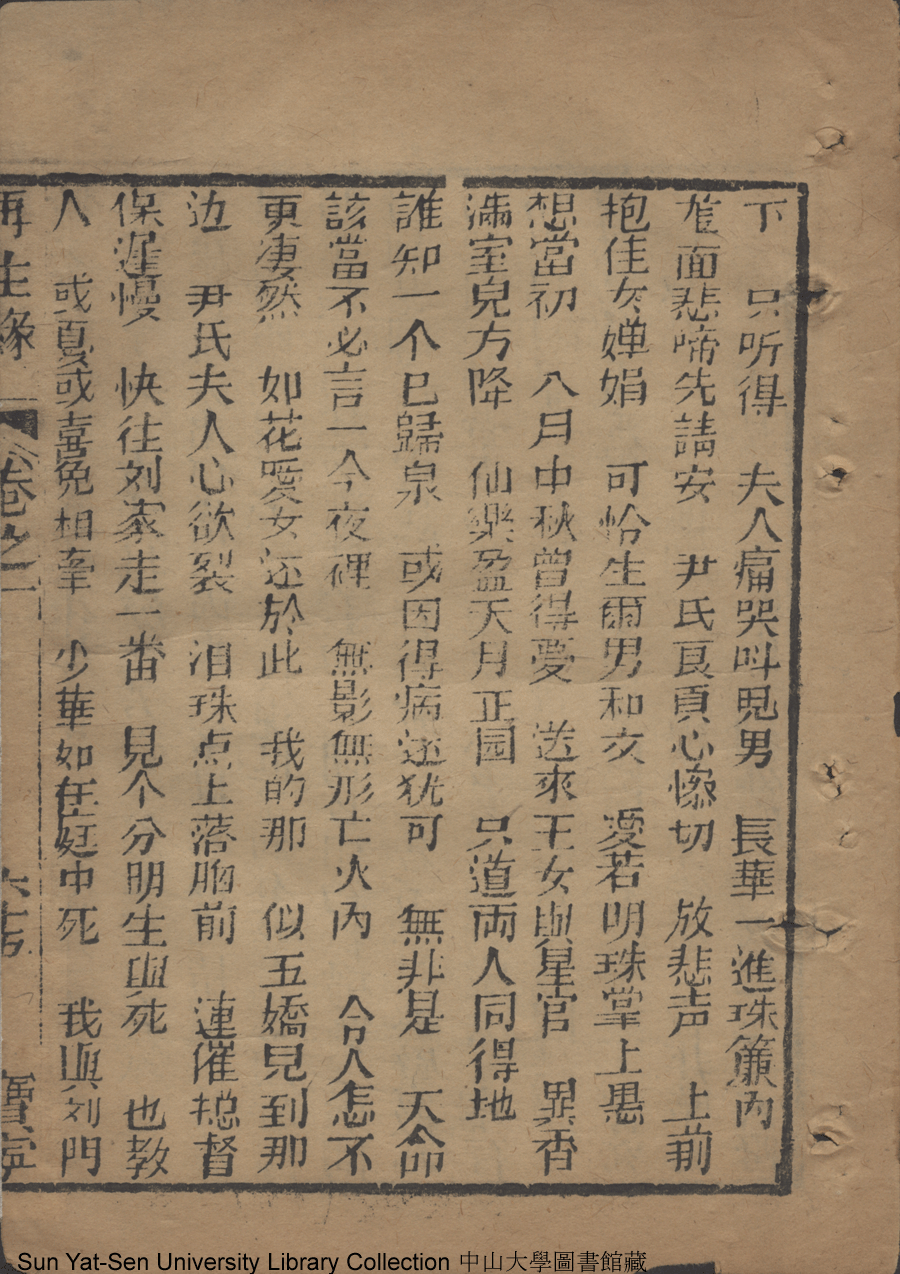 下　只听得　夫人痛哭叫兒男　長華一進珠簾內
面悲啼先請安　尹氏良貞心慘切　放悲声　上前
抱佳女嬋娟　可怜生爾男和女　愛若明珠掌上懸
想當初　八月中秋曾得夢　送來王女與星官　異香
滿室兒方降　仙樂盈天月正园　只道兩人同得地
誰知一个已歸泉　或因得病还犹可　無非是　天命
該當不必言一今夜裡　無影無形亡火內　令人怎不
更凄然　如花愛女还於此　我的那　似五嬌兒到那
边　尹氏夫人心欲裂　泪珠点上落胸前　連催摠督
保遲慢　快往刘家走一番　見个分明生與死　也教
人　或憂或喜免相牽　少華如在庭中死　我與刘門
再生緣　卷之一　六十七　寶寧
Sun Yat-Sen University Library Collection 中山大學圖書館藏